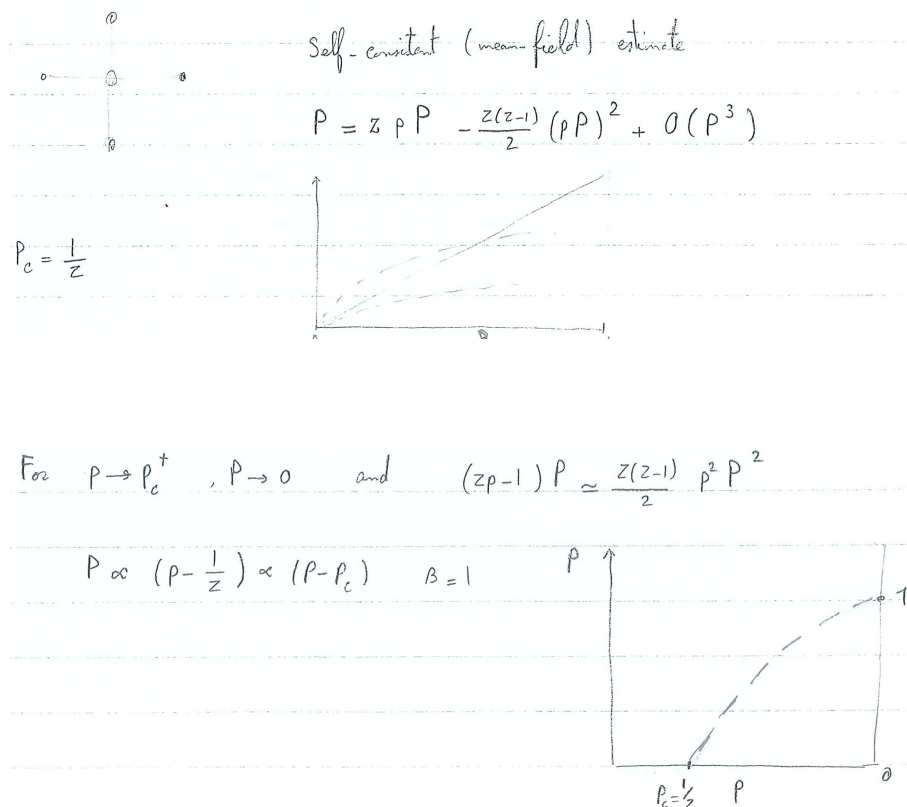 Self-consitent (mean-field) estimate
P = z p P - z(z-1)/2 (pP)² + O(P³)
P_c = 1/z
1
For p → p_c⁺ , P → 0 and (zp-1) P ≃ z(z-1)/2 p² P²
P ∝ (p - 1/z) ∝ (p - p_c) β = 1
P
1
0
p_c = 1/z p